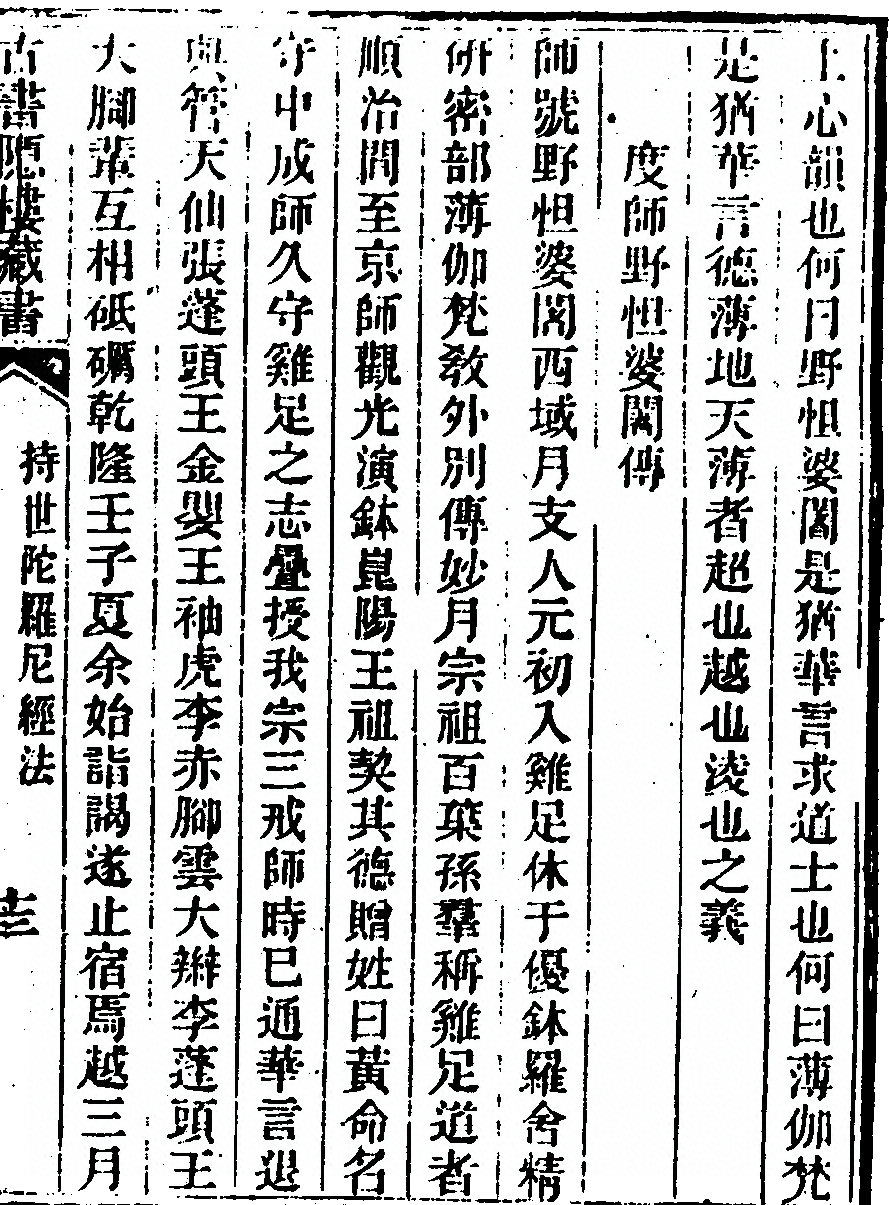 上心韻也何曰野怛婆闍是猶華言求道士也何曰薄伽梵
是猶華言德薄地天薄者超也越也淩也之義
度師野怛婆闍傳
師號野怛婆闍西域月支人元初入雞足休于優鉢羅舍精
研密部薄伽梵敎外別傳妙月宗祖百葉孫羣稱雞足道者
順治間至京師觀光演鉢崑陽王祖契其德贈姓曰黃命名
守中成師久守雞足之志疊授我宗三戒師時巳通華言退
與管天仙張蓬頭王金嬰王袖虎李赤脚雲大辮李蓬頭王
大脚輩互相砥礪乾隆壬子夏余始詣謁遂止宿焉越三月
古書隱樓藏書
持世陀羅尼經法
十三